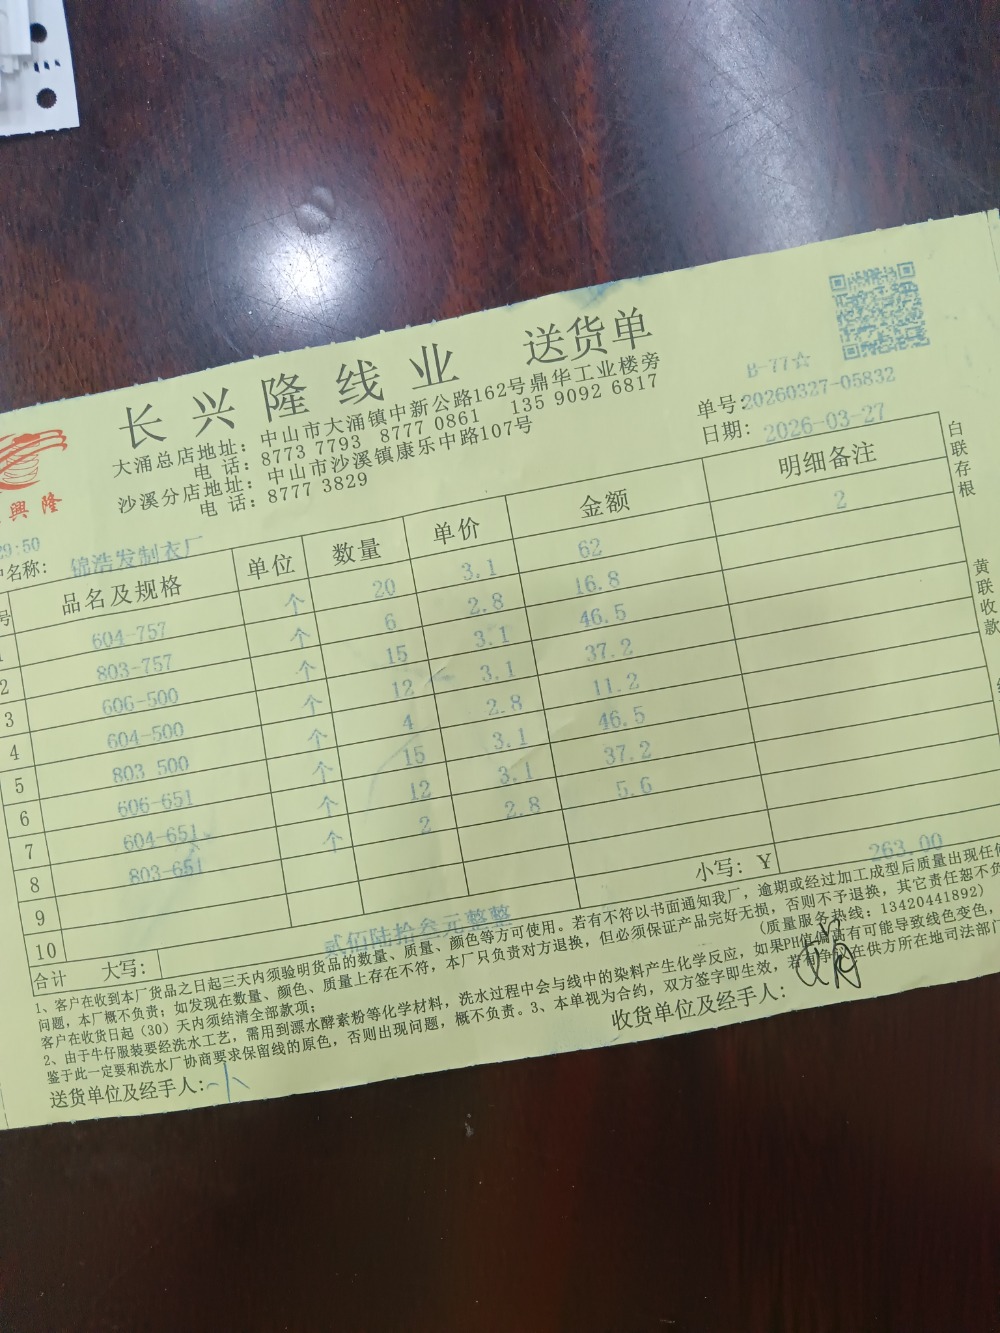 长兴隆线业 送货单
B-77☆
大涌总店地址: 中山市大涌镇中新公路162号鼎华工业楼旁
单号:20260327-05832
电 话: 8773 7793 8777 0861 135 9092 6817
日期: 2026-03-27
沙溪分店地址: 中山市沙溪镇康乐中路107号
电 话: 8777 3829
興隆
29:50
名称: 锦浩发制衣厂
号 品名及规格 单位 数量 单价 金额 明细备注
1 604-757 个 20 3.1 62 2
2 803-757 个 6 2.8 16.8
3 606-500 个 15 3.1 46.5
4 604-500 个 12 3.1 37.2
5 803 500 个 4 2.8 11.2
6 606-651 个 15 3.1 46.5
7 604-651 个 12 3.1 37.2
8 803-651 个 2 2.8 5.6
9
10
合计 大写: 贰佰陆拾叁元整整 小写: Y 263.00
白联存根
黄联收款
1、客户在收到本厂货品之日起三天内须验明货品的数量、质量、颜色等方可使用。若有不符以书面通知我厂，逾期或经过加工成型后质量出现任何
问题，本厂概不负责；如发现在数量、颜色、质量上存在不符，本厂只负责对方退换，但必须保证产品完好无损，否则不予退换，其它责任恕不负
客户在收货日起（30）天内须结清全部款项； (质量服务热线: 13420441892)
2、由于牛仔服装要经洗水工艺，需用到漂水酵素粉等化学材料，洗水过程中会与线中的染料产生化学反应，如果PH值偏高有可能导致线色变色，
鉴于此一定要和洗水厂协商要求保留线的原色，否则出现问题，概不负责。3、本单视为合约，双方签字即生效，若有争议在供方所在地司法部门
送货单位及经手人: 收货单位及经手人: